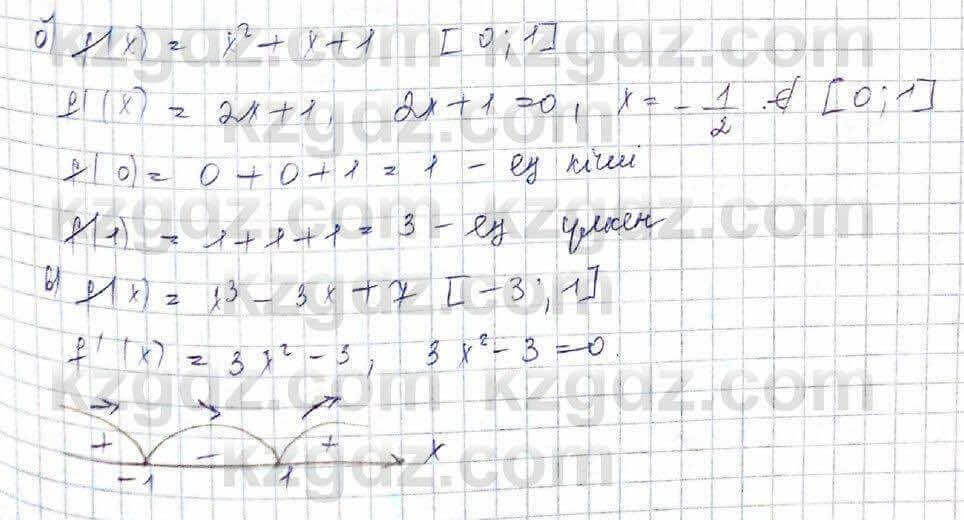 б) f(x) = x² + x + 1 [0; 1]
f'(x) = 2x + 1, 2x + 1 = 0, x = -1/2 ∉ [0; 1]
f(0) = 0 + 0 + 1 = 1 - ең кіші
f(1) = 1 + 1 + 1 = 3 - ең үлкен
в) f(x) = x³ - 3x + 7 [-3; 1]
f'(x) = 3x² - 3, 3x² - 3 = 0.
+ - + x
-1 1
kzgdz.com kzgdz.com
kzgdz.com kzgdz.com
kzgdz.com kzgdz.com
kzgdz.com kzgdz.com
kzgdz.com kzgdz.com
kzgdz.com kzgdz.com